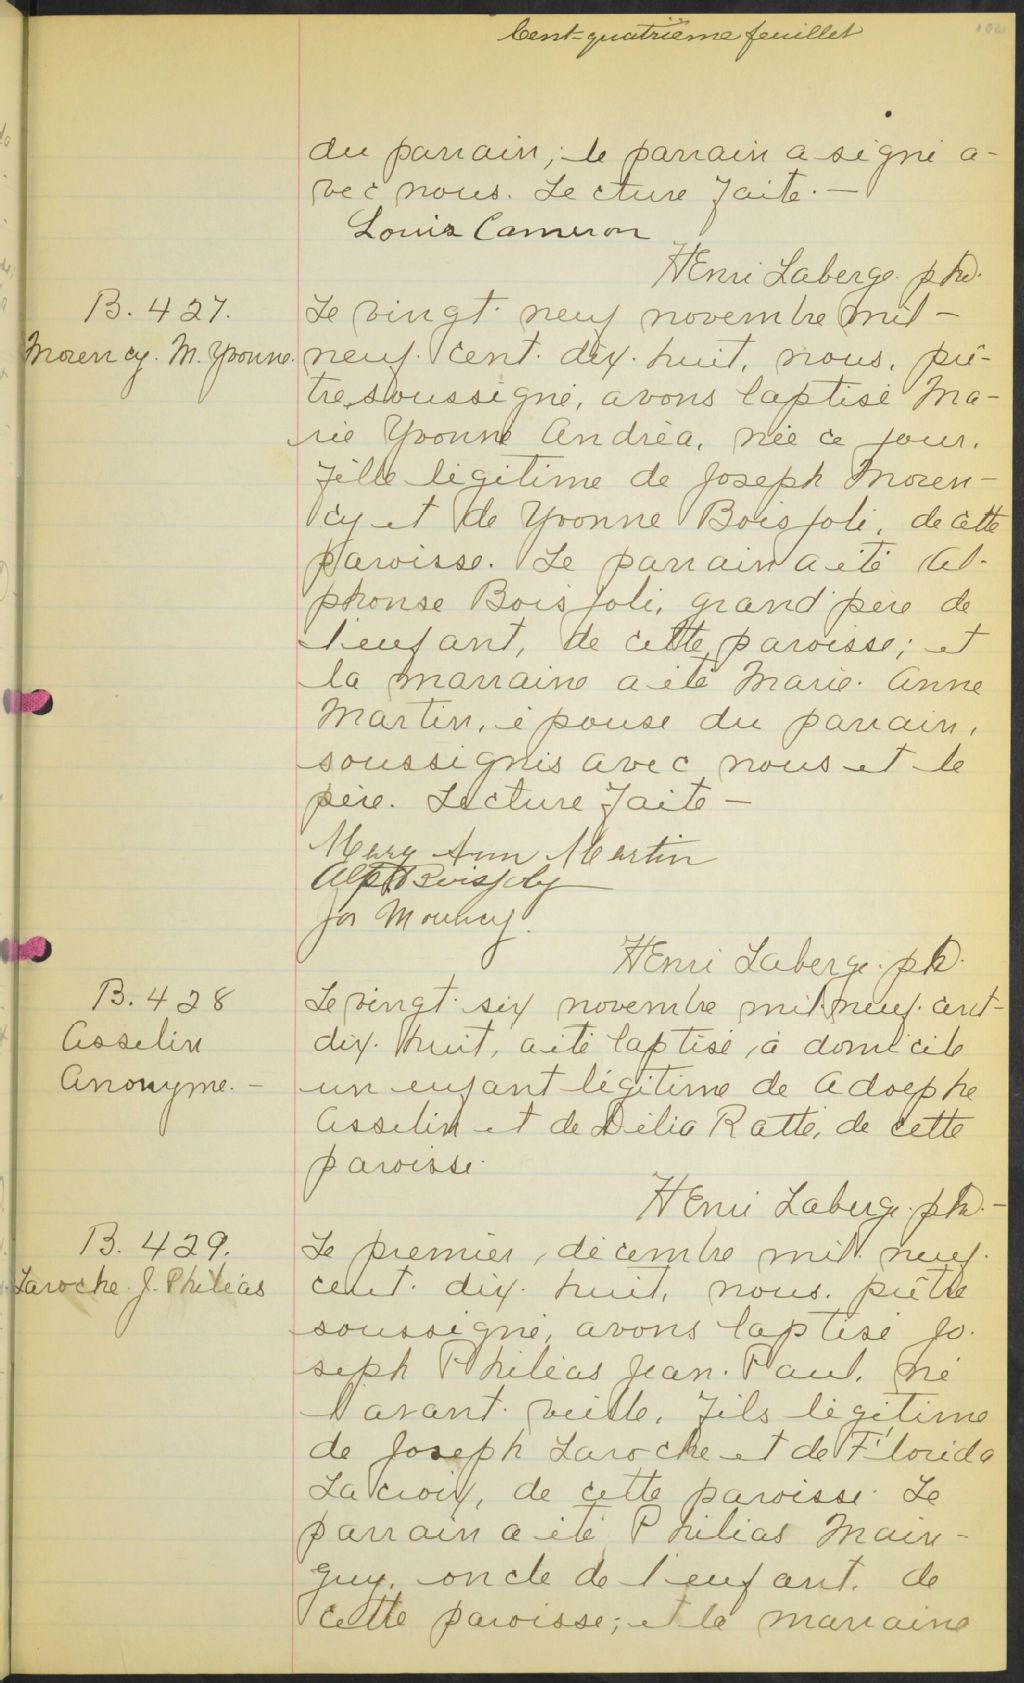 Cent-quatrième feuillet
du parrain; le parrain a signé a-
vec nous. Lecture faite. —
Louis Cameron
Henri Laberge. ptre.
B. 427.
Morency. M. Yvonne.
Le vingt-neuf novembre mil-
neuf-cent-dix-huit, nous, prê-
tre soussigné, avons baptisé Ma-
rie Yvonne Andréa, née ce jour,
fille légitime de Joseph Moren-
cy et de Yvonne Boisjoli, de cette
paroisse. Le parrain a été Al-
phonse Boisjoli, grand'père de
l'enfant, de cette paroisse; et
la marraine a été Marie-Anne
Martin, épouse du parrain,
soussignés avec nous et le
père. Lecture faite —
Mary Ann Martin
Alph Boisjoly
Jos Morency.
Henri Laberge. ptre.
B. 428
Asselin
Anonyme. —
Le vingt-six novembre mil-neuf-cent-
dix-huit, a été baptisé, à domicile
un enfant légitime de Adolphe
Asselin et de Délia Ratté, de cette
paroisse.
Henri Laberge. ptre. —
B. 429.
Laroche. J. Philéas
Le premier, décembre mil-neuf-
cent-dix-huit, nous, prêtre
soussigné, avons baptisé Jo-
seph Philéas Jean-Paul, né
l'avant-veille, fils légitime
de Joseph Laroche et de Florida
Lacroix, de cette paroisse. Le
parrain a été Philias Main-
guy, oncle de l'enfant, de
cette paroisse; et la marraine